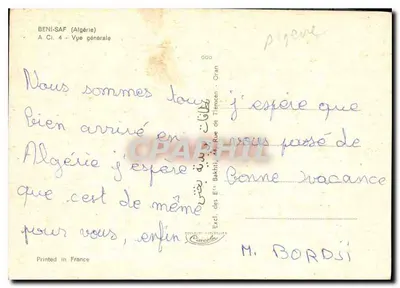 BENI-SAF (Algérie)
A Ci. 4 - Vue générale
Algérie
Nous sommes tous
bien arrivé en
Algérie j'espère
que c'est de même
pour vous, enfin
j'espère que
vous passé de
Bonne vacance
M. BORDJi
Excl. des Ets Bakhti, Rue de Tlemcen - Oran
CPAPHIL
Printed in France